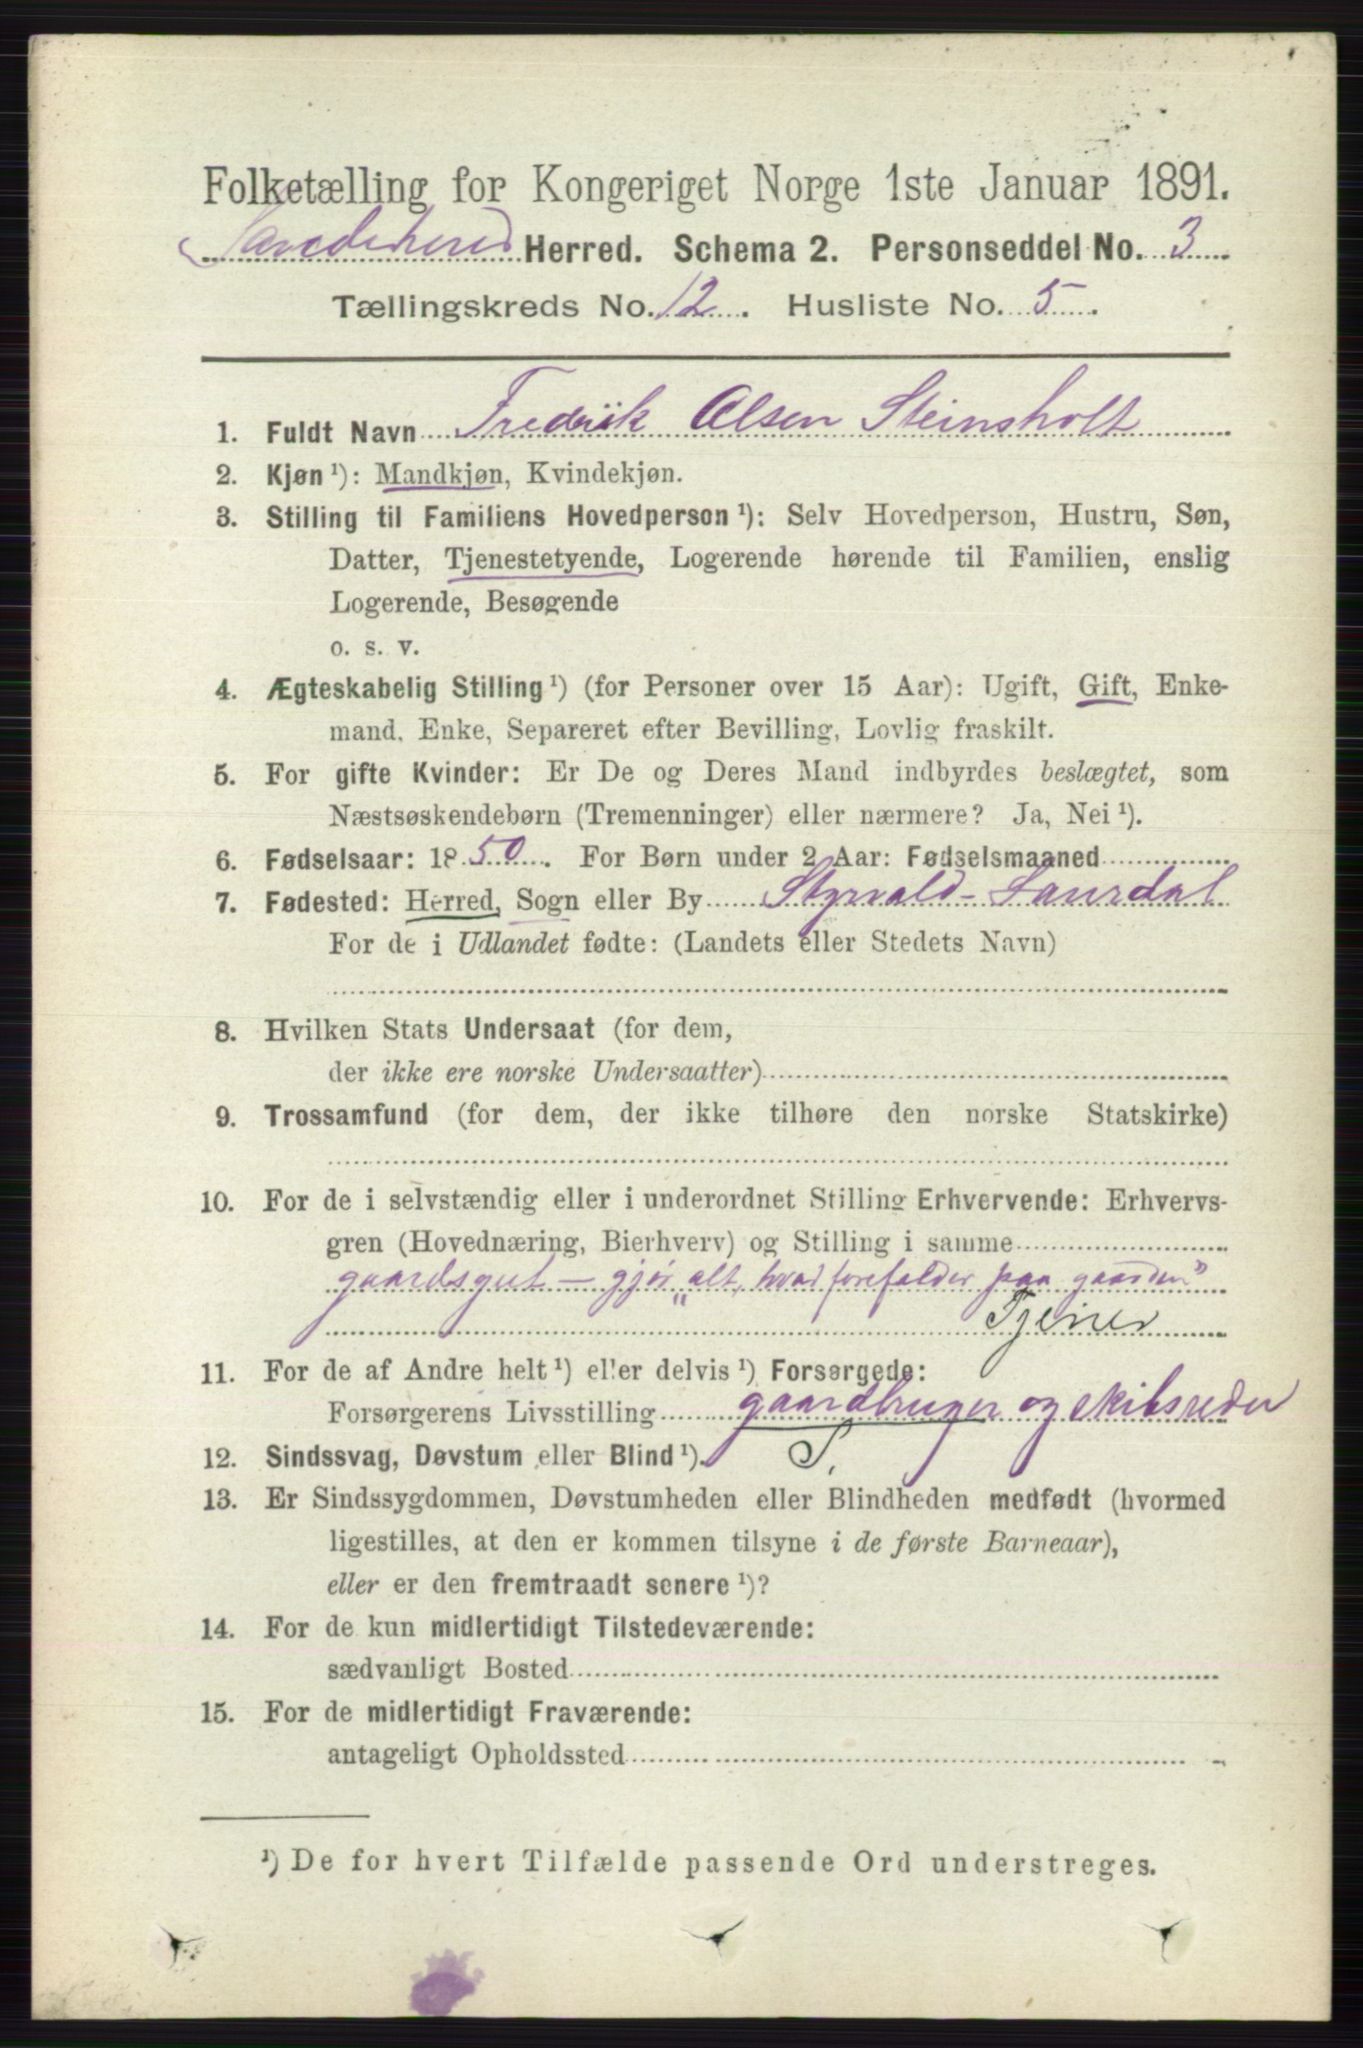 Folketælling for Kongeriget Norge 1ste Januar 1891.
Sandeherred Herred. Schema 2. Personseddel No. 3
Tællingskreds No. 12. Husliste No. 5.
1. Fuldt Navn Fredrik Olsen Steinsholt
2. Kjøn ¹): Mandkjøn, Kvindekjøn.
3. Stilling til Familiens Hovedperson ¹): Selv Hovedperson, Hustru, Søn,
Datter, Tjenestetyende, Logerende hørende til Familien, enslig
Logerende, Besøgende
o. s. v.
4. Ægteskabelig Stilling ¹) (for Personer over 15 Aar): Ugift, Gift, Enke-
mand, Enke, Separeret efter Bevilling, Lovlig fraskilt.
5. For gifte Kvinder: Er De og Deres Mand indbyrdes beslægtet, som
Næstsøskendebørn (Tremenninger) eller nærmere? Ja, Nei ¹).
6. Fødselsaar: 1850. For Børn under 2 Aar: Fødselsmaaned
7. Fødested: Herred, Sogn eller By Styrvold - Laurdal
For de i Udlandet fødte: (Landets eller Stedets Navn)
8. Hvilken Stats Undersaat (for dem,
der ikke ere norske Undersaatter)
9. Trossamfund (for dem, der ikke tilhøre den norske Statskirke)
10. For de i selvstændig eller i underordnet Stilling Erhvervende: Erhvervs-
gren (Hovednæring, Bierhverv) og Stilling i samme
gaardsgut - gjør "alt, hvad forefalder paa gaarden"
Tjener
11. For de af Andre helt ¹) eller delvis ¹) Forsørgede:
Forsørgerens Livsstilling gaardbruger og skibsreder
12. Sindssvag, Døvstum eller Blind ¹). S.
13. Er Sindssygdommen, Døvstumheden eller Blindheden medfødt (hvormed
ligestilles, at den er kommen tilsyne i de første Barneaar),
eller er den fremtraadt senere ¹)?
14. For de kun midlertidigt Tilstedeværende:
sædvanligt Bosted
15. For de midlertidigt Fraværende:
antageligt Opholdssted
¹) De for hvert Tilfælde passende Ord understreges.